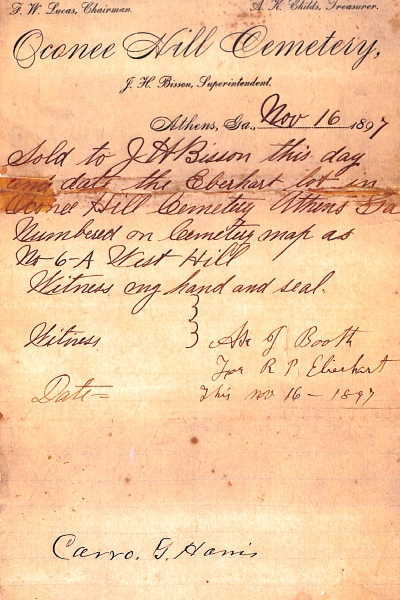 F. W. Lucas, Chairman.
A. K. Childs, Treasurer.
Oconee Hill Cemetery,
J. H. Bisson, Superintendent.
Athens, Ga., Nov 16 1897
Sold to J H Bisson this day
and date the Eberhart lot in
Oconee Hill Cemetery Athens Ga
Numbered on Cemetery map as
No 6-A West Hill
Witness my hand and seal.
Witness
of Booth
For R P. Eberhart
Date =
This nov 16 - 1897
G. Harris